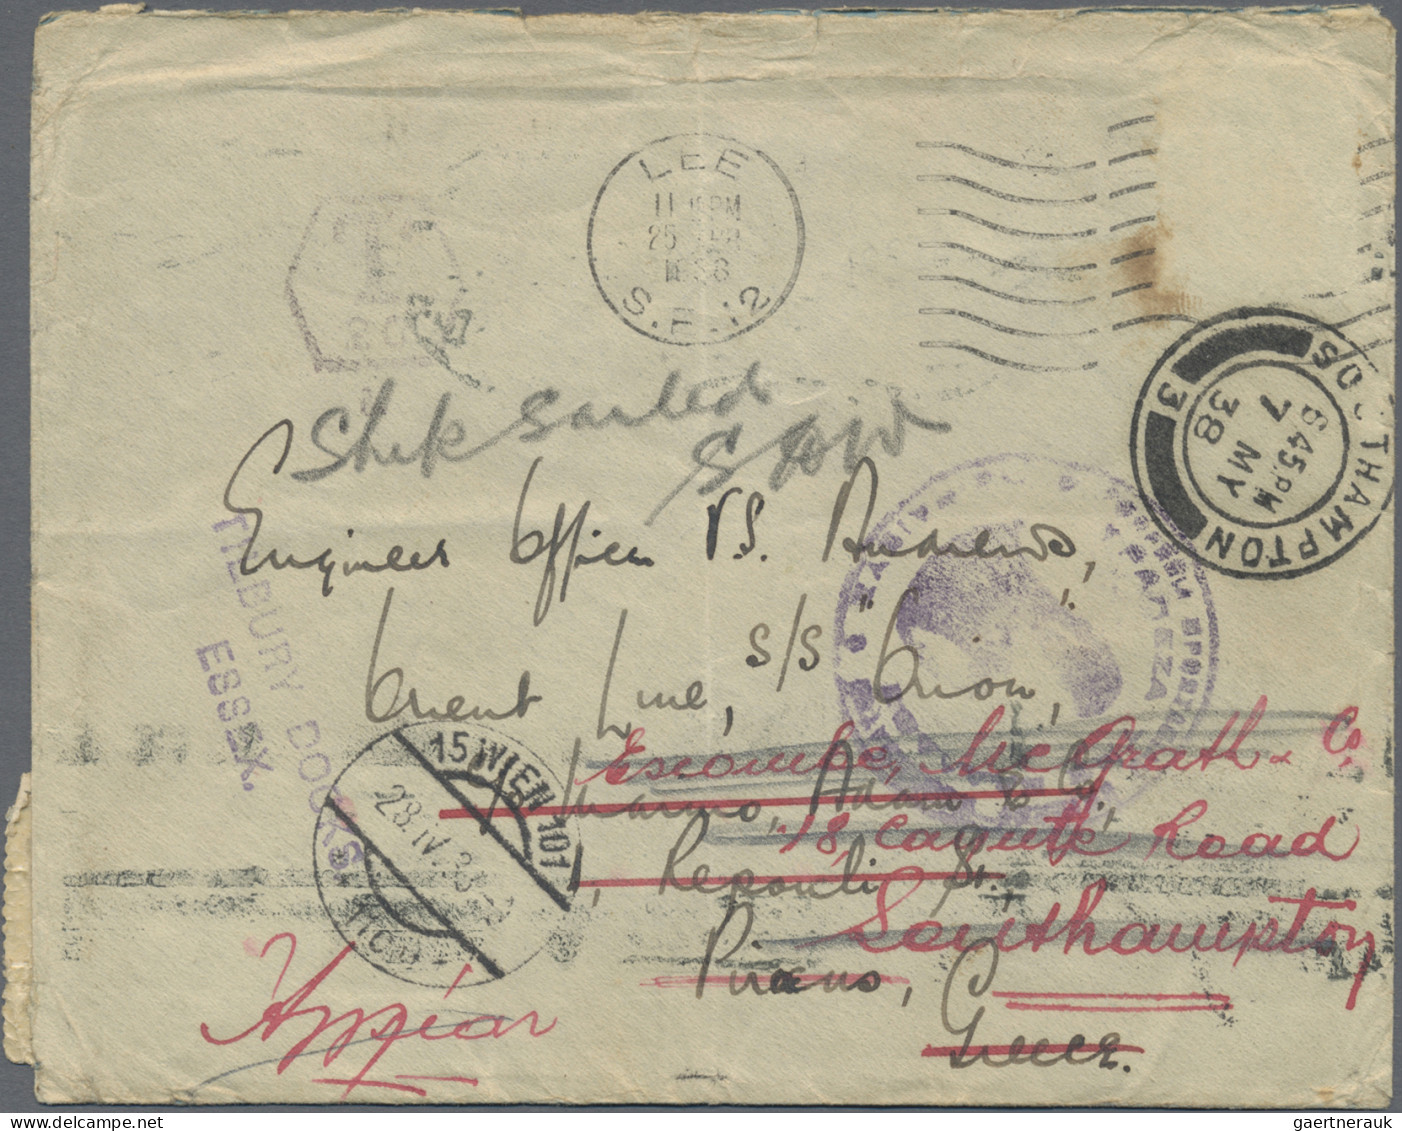 LEE
11 15PM
25 APR
1938
S.E.12
T
20
SOUTHAMPTON
6 45 PM
7 MY
38
3
Ship Sailed
Engineer Officer P.S. Andrews,
Orient Line, S/S "Orion",
Escombe, McGrath & Co
Adam & Co.
18, Canute Road
St.
Southampton
Piraeus,
Greece.
TILBURY DOCKS.
ESSEX.
15 WIEN 101
28.IV.38
gaertnerauk